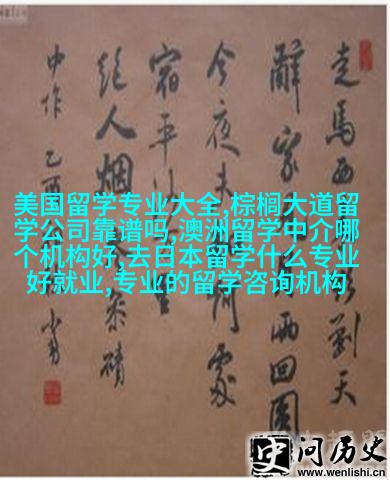 走馬西
到天
辭家
两回圆
今夜未
處
宿平沙
绝人烟
参碛
中作 乙酉
美国留学专业大全,棕榈大道留
学公司靠谱吗,澳洲留学中介哪
个机构好,去日本留学什么专业
好就业,专业的留学咨询机构
史 问历史
www.wenlishi.cn